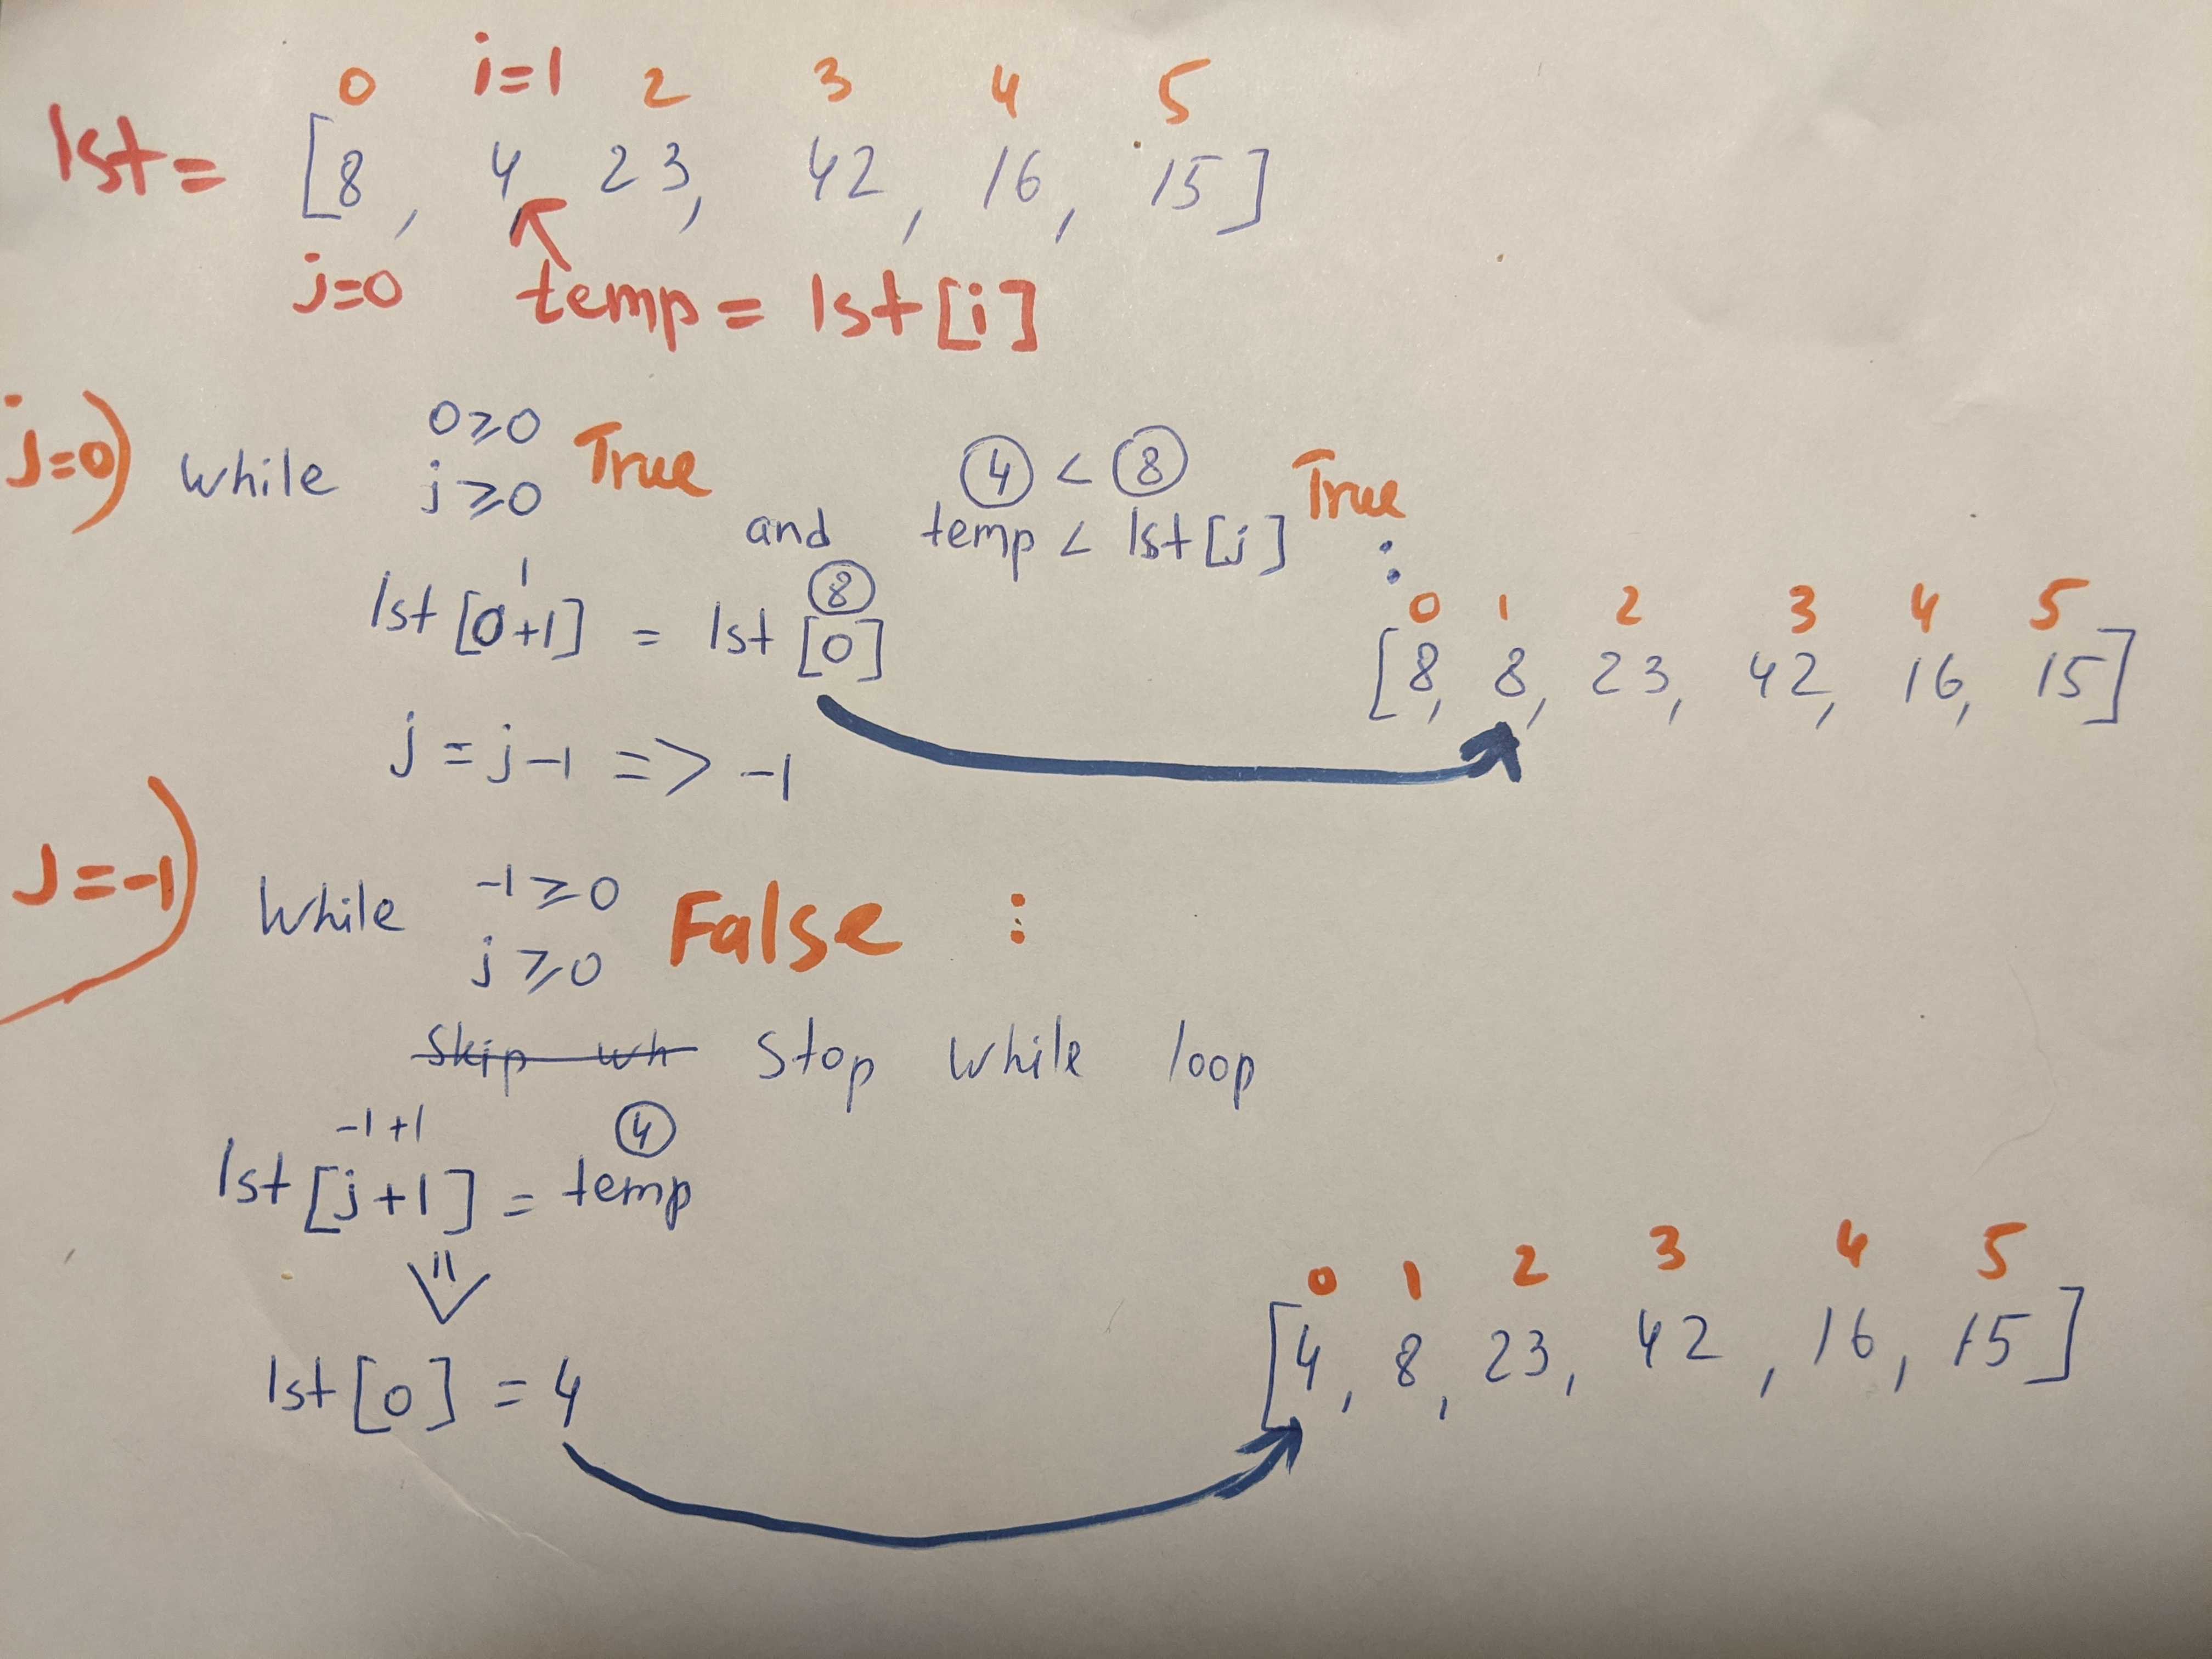 0 i=1 2 3 4 5
lst = [8, 4, 23, 42, 16, 15]
j=0 temp = lst[i]
0⩾0 4 < 8
j=0) while j⩾0 True and temp < lst[j] True :
1 8
lst [0+1] = lst [0]
0 1 2 3 4 5
[8, 8, 23, 42, 16, 15]
j = j-1 => -1
-1⩾0
J=-1) While j⩾0 False :
Skip wh Stop While loop
-1+1 4
lst [j+1] = temp
lst [0] = 4
0 1 2 3 4 5
[4, 8, 23, 42, 16, 15]